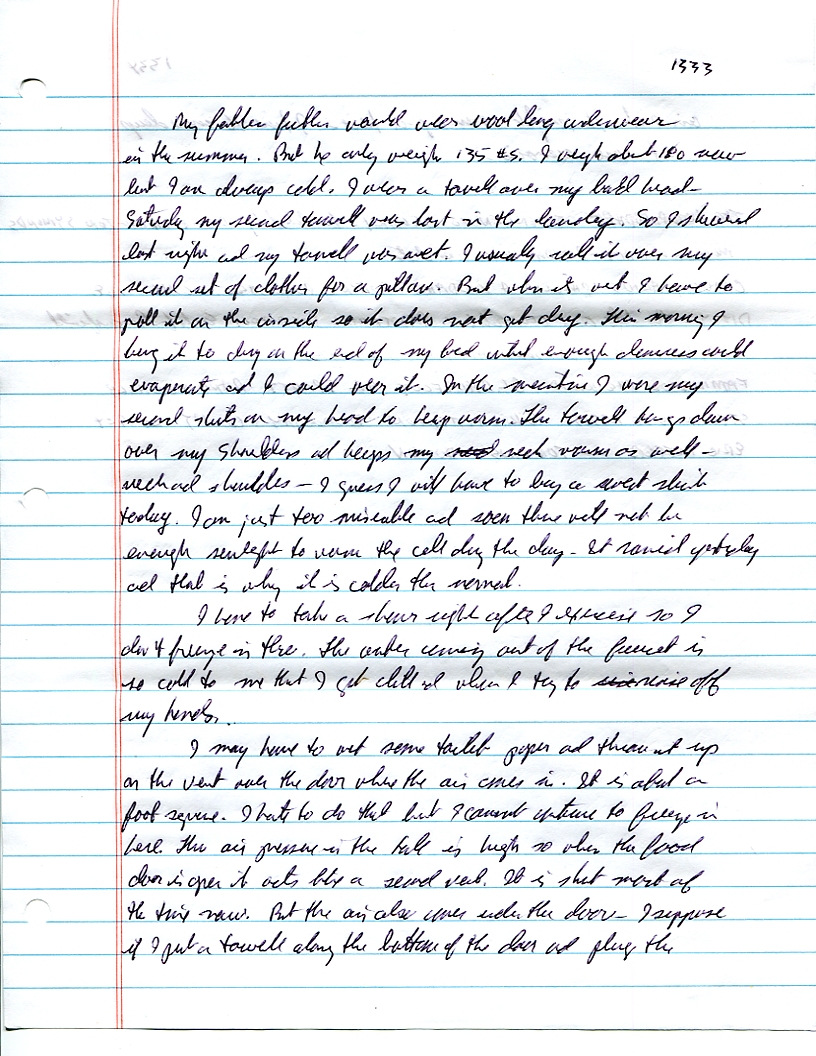 1333
My father further would wear wool long underwear
in the summer. But he only weigh 135 #s. I weigh about 180 now
but I am always cold. I wear a towell over my bald head -
Saturday my second towell was lost in the laundry. So I showered
last night ad my towell was wet. I usually roll it over my
second set of clothes for a pillow. But when it is wet I have to
roll it on the inside so it does not get dry. This morning I
hung it to dry on the end of my bed until enough dampness could
evaporate ad I could wear it. In the meantime I wore my
second shirts on my head to keep warm. The towell hangs down
over my shoulders ad keeps my neck warm as well -
neck ad shoulders - I guess I will have to buy a sweat shirt
today. I am just too miserable ad soon there will not be
enough sunlight to warm the cell during the day - It rained yesterday
ad that is why it is colder than normal.
I have to take a shower right after I exercise so I
don't freeze in there. The water coming out of the faucet is
so cold to me that I get chilled when I try to rinse off
my hands.
I may have to wet some toilet paper ad throw it up
on the vent over the door where the air comes in. It is about a
foot square. I hate to do that but I cannot continue to freeze in
here. The air pressure in the hall is high so when the food
door is open it acts like a second vent. It is shut most of
the time now. But the air also comes under the door - I suppose
if I put a towell along the bottom of the door ad plug the